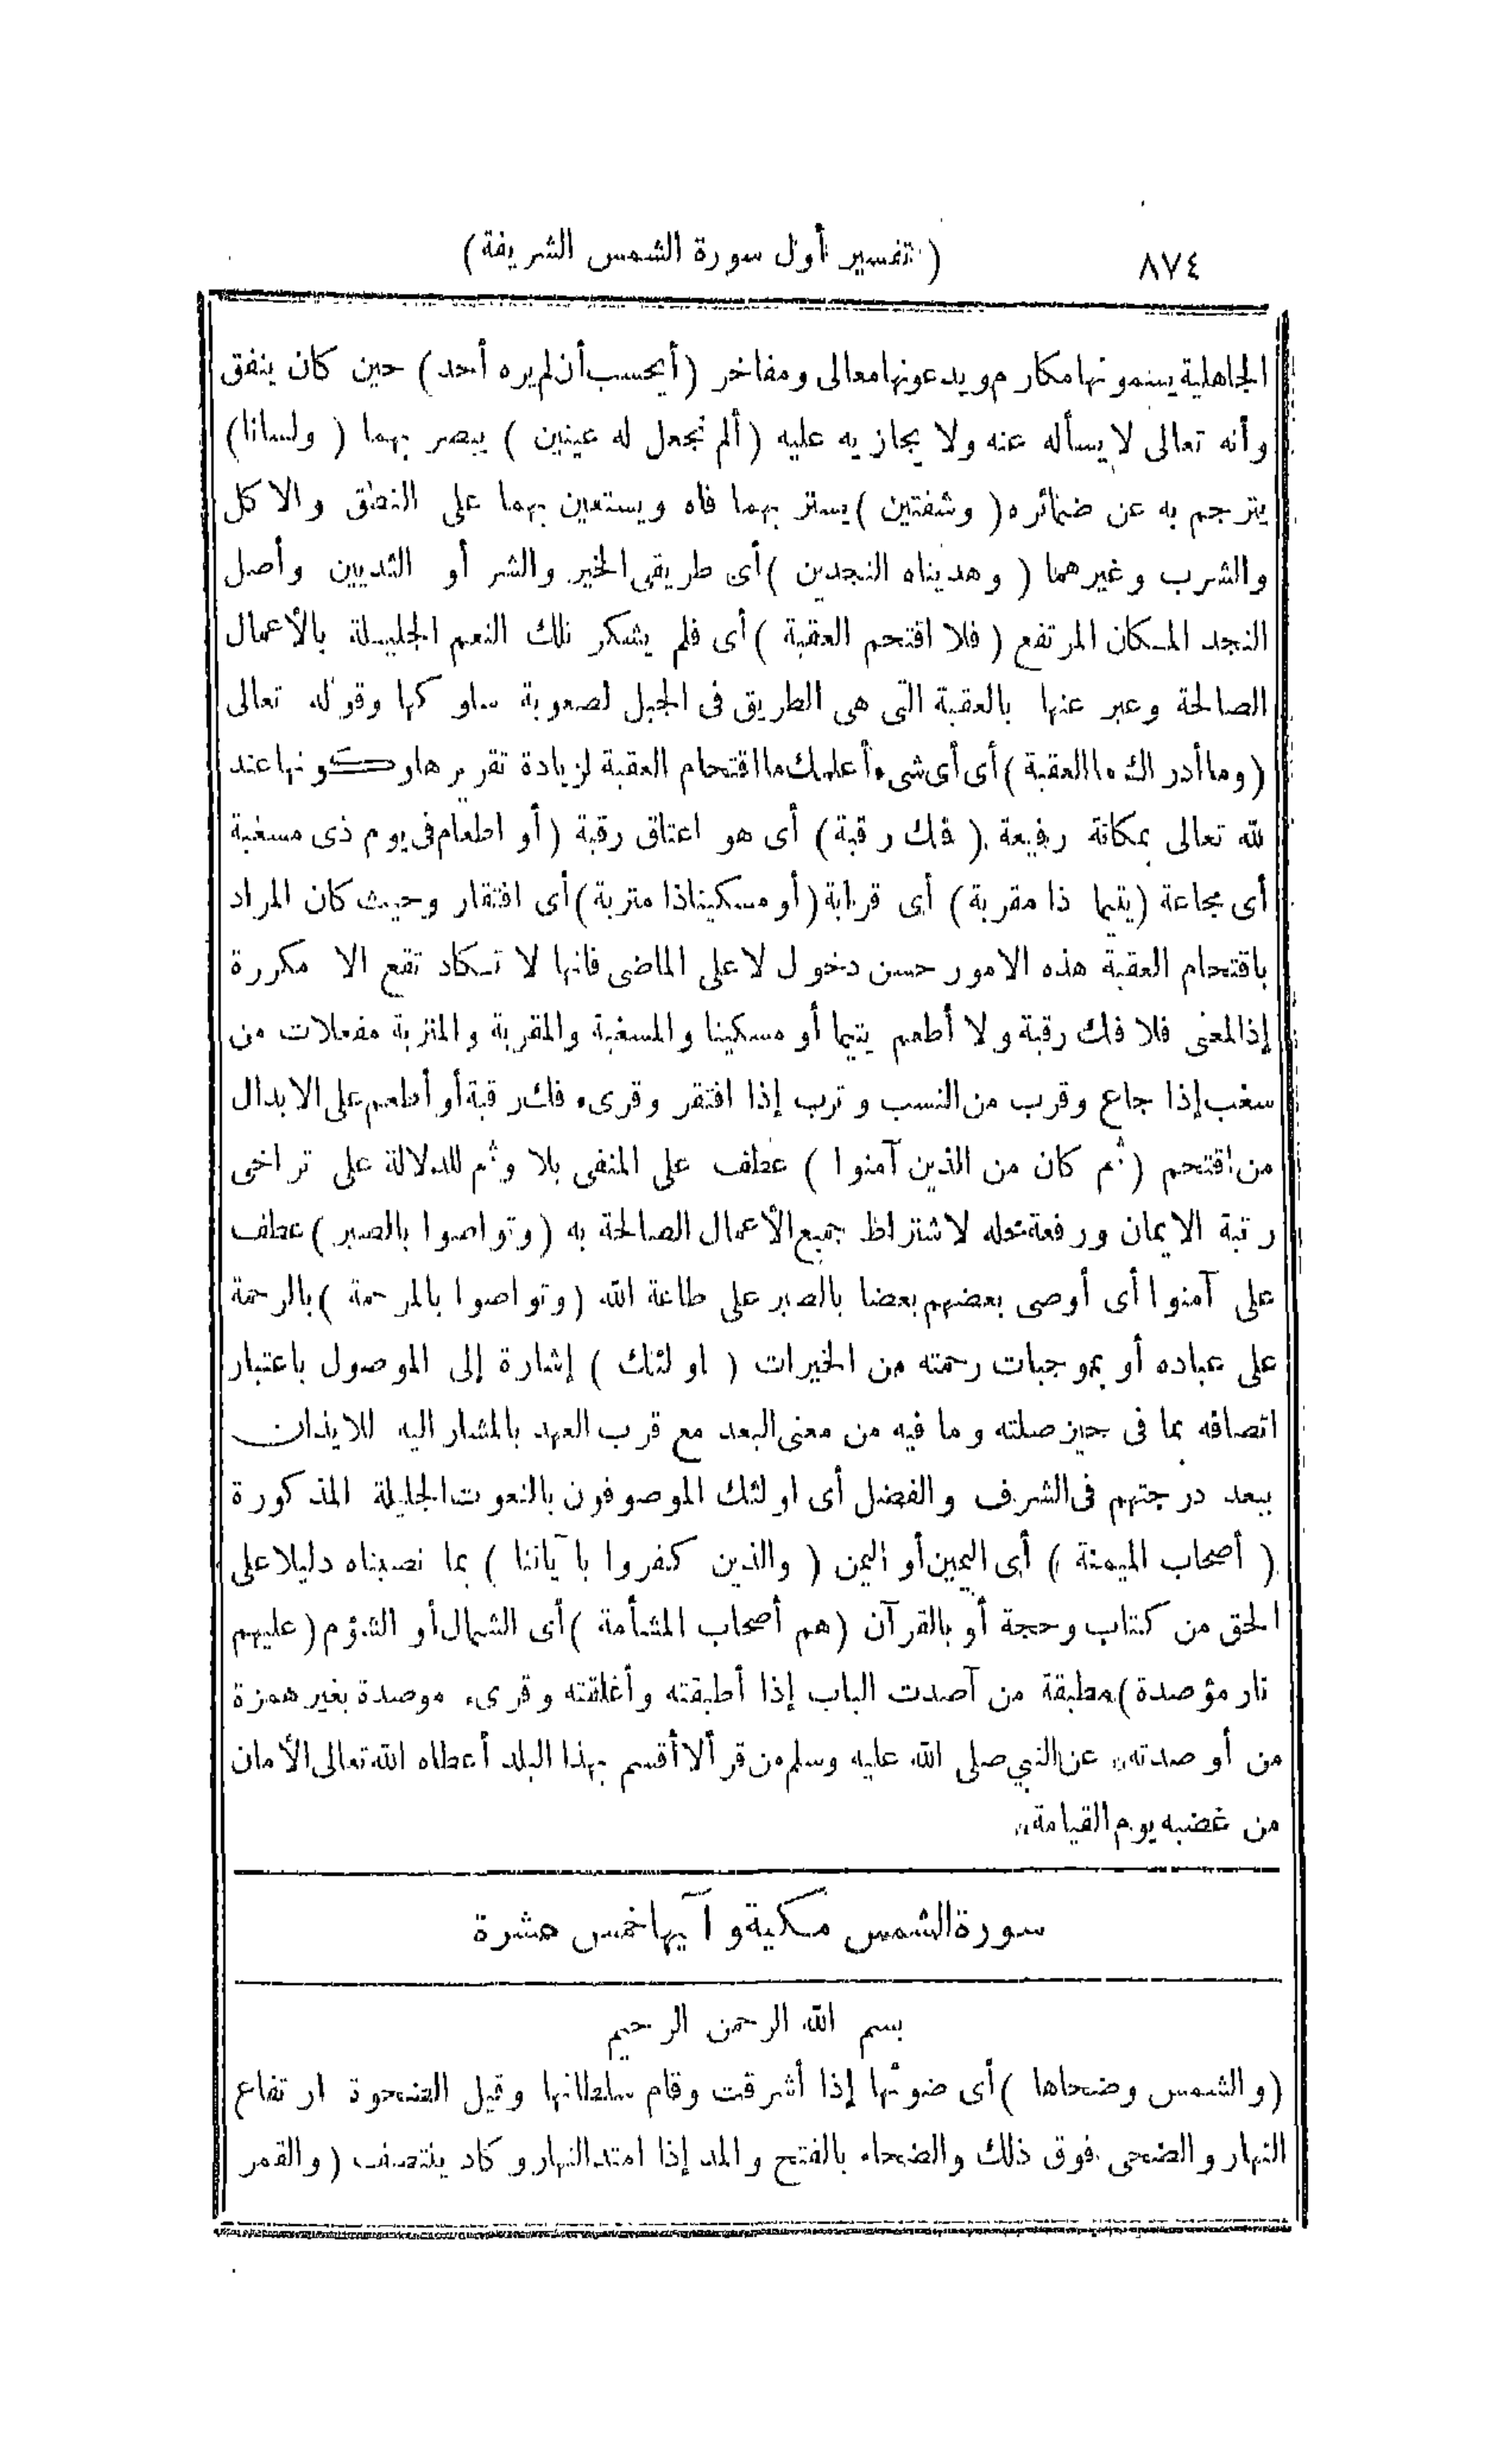 ٨٧٤ (تفسير أول سورة الشمس الشريفة)
الجاهلية يسمونها مكارم ويدعونها معالى ومفاخر (أيحسب أن لم يره أحد) حين كان ينفق
وأنه تعالى لا يسأله عنه ولا يجازيه عليه (ألم نجعل له عينين) يبصر بهما (ولسانا)
يترجم به عن ضمائره (وشفتين) يستر بهما فاه ويستعين بهما على النطق والاكل
والشرب وغيرهما (وهديناه النجدين) أى طريقى الخير والشر أو الثديين وأصل
النجد المكان المرتفع (فلا اقتحم العقبة) أى فلم يشكر تلك النعم الجليلة بالأعمال
الصالحة وعبر عنها بالعقبة التى هى الطريق فى الجبل لصعوبة سلوكها وقوله تعالى
(وما أدراك ما العقبة) أى أى شىء أعلمك ما اقتحام العقبة لزيادة تقريرها وكونها عند
لله تعالى بمكانة رفيعة (فك رقبة) أى هو اعتاق رقبة (أو اطعام فى يوم ذى مسغبة
أى مجاعة (يتيما ذا مقربة) أى قرابة (أو مسكينا ذا متربة) أى افتقار وحيث كان المراد
باقتحام العقبة هذه الامور حسن دخول لا على الماضى فانها لا تكاد تقع الا مكررة
إذ المعنى فلا فك رقبة ولا أطعم يتيما أو مسكينا والمسغبة والمقربة والمتربة مفعلات من
سغب إذا جاع وقرب من النسب وترب إذا افتقر وقرىء فك رقبة أو أطعم على الابدال
من اقتحم (ثم كان من الذين آمنوا) عطف على المنفى بلا وثم للدلالة على تراخى
رتبة الايمان ورفعة محله لاشتراط جميع الأعمال الصالحة به (وتواصوا بالصبر) عطف
على آمنوا أى أوصى بعضهم بعضا بالصبر على طاعة الله (وتواصوا بالمرحمة) بالرحمة
على عباده أو بموجبات رحمته من الخيرات (اولئك) إشارة إلى الموصول باعتبار
اتصافه بما فى حيز صلته وما فيه من معنى البعد مع قرب العهد بالمشار اليه للايذان
ببعد درجتهم فى الشرف والفضل أى اولئك الموصوفون بالنعوت الجليلة المذكورة
(أصحاب الميمنة) أى اليمين أو اليمن (والذين كفروا بآياتنا) بما نصبناه دليلا على
الحق من كتاب وحجة أو بالقرآن (هم أصحاب المشأمة) أى الشمال أو الشؤم (عليهم
نار مؤصدة) مطبقة من آصدت الباب إذا أطبقته وأغلقته وقرىء موصدة بغير همزة
من أوصدته،، عن النبي صلى الله عليه وسلم من قرأ لا أقسم بهذا البلد أعطاه الله تعالى الأمان
من غضبه يوم القيامة،،
سورة الشمس مكية وآيها خمس عشرة
بسم الله الرحمن الرحيم
(والشمس وضحاها) أى ضوئها إذا أشرقت وقام سلطانها وقيل الضحوة ارتفاع
النهار والضحى فوق ذلك والضحاء بالفتح والمد إذا امتد النهار وكاد ينتصف (والقمر